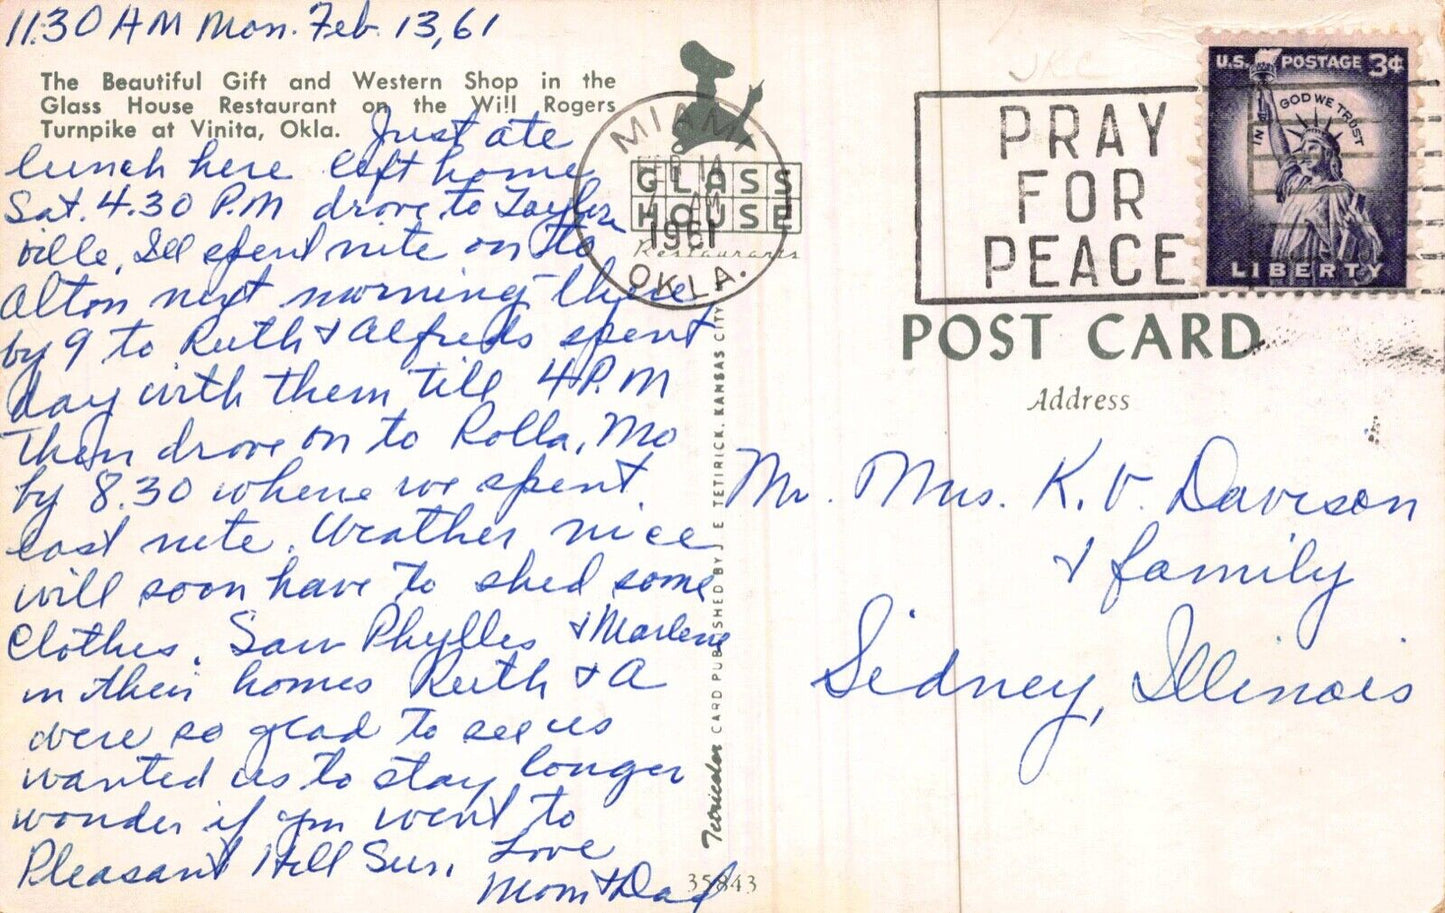 11:30 AM Mon. Feb. 13, 61
The Beautiful Gift and Western Shop in the
Glass House Restaurant on the Will Rogers
Turnpike at Vinita, Okla.
Just ate
lunch here left home
Sat. 4.30 P.M drove to Taylor
ville, Ill spent nite on to
Alton next morning there
by 9 to Ruth & Alfreds spent
day with them till 4 P.M
Then drove on to Rolla, Mo
by 8.30 where we spent
last nite. Weather nice
will soon have to shed some
Clothes. Saw Phylles & Marlene
in their homes Ruth & A
were so glad to see us
wanted us to stay longer
wonder if you went to
Pleasant Hill Sun.
Love
Mom & Dad
GLASS
HOUSE
Restaurants
MIAMI
AM
1961
OKLA.
Tetricolor CARD PUBLISHED BY J. E. TETIRICK, KANSAS CITY
35843
PRAY
FOR
PEACE
U.S. POSTAGE 3¢
IN GOD WE TRUST
LIBERTY
POST CARD
Address
Mr. Mrs. K. V. Davison
& family
Sidney, Illinois